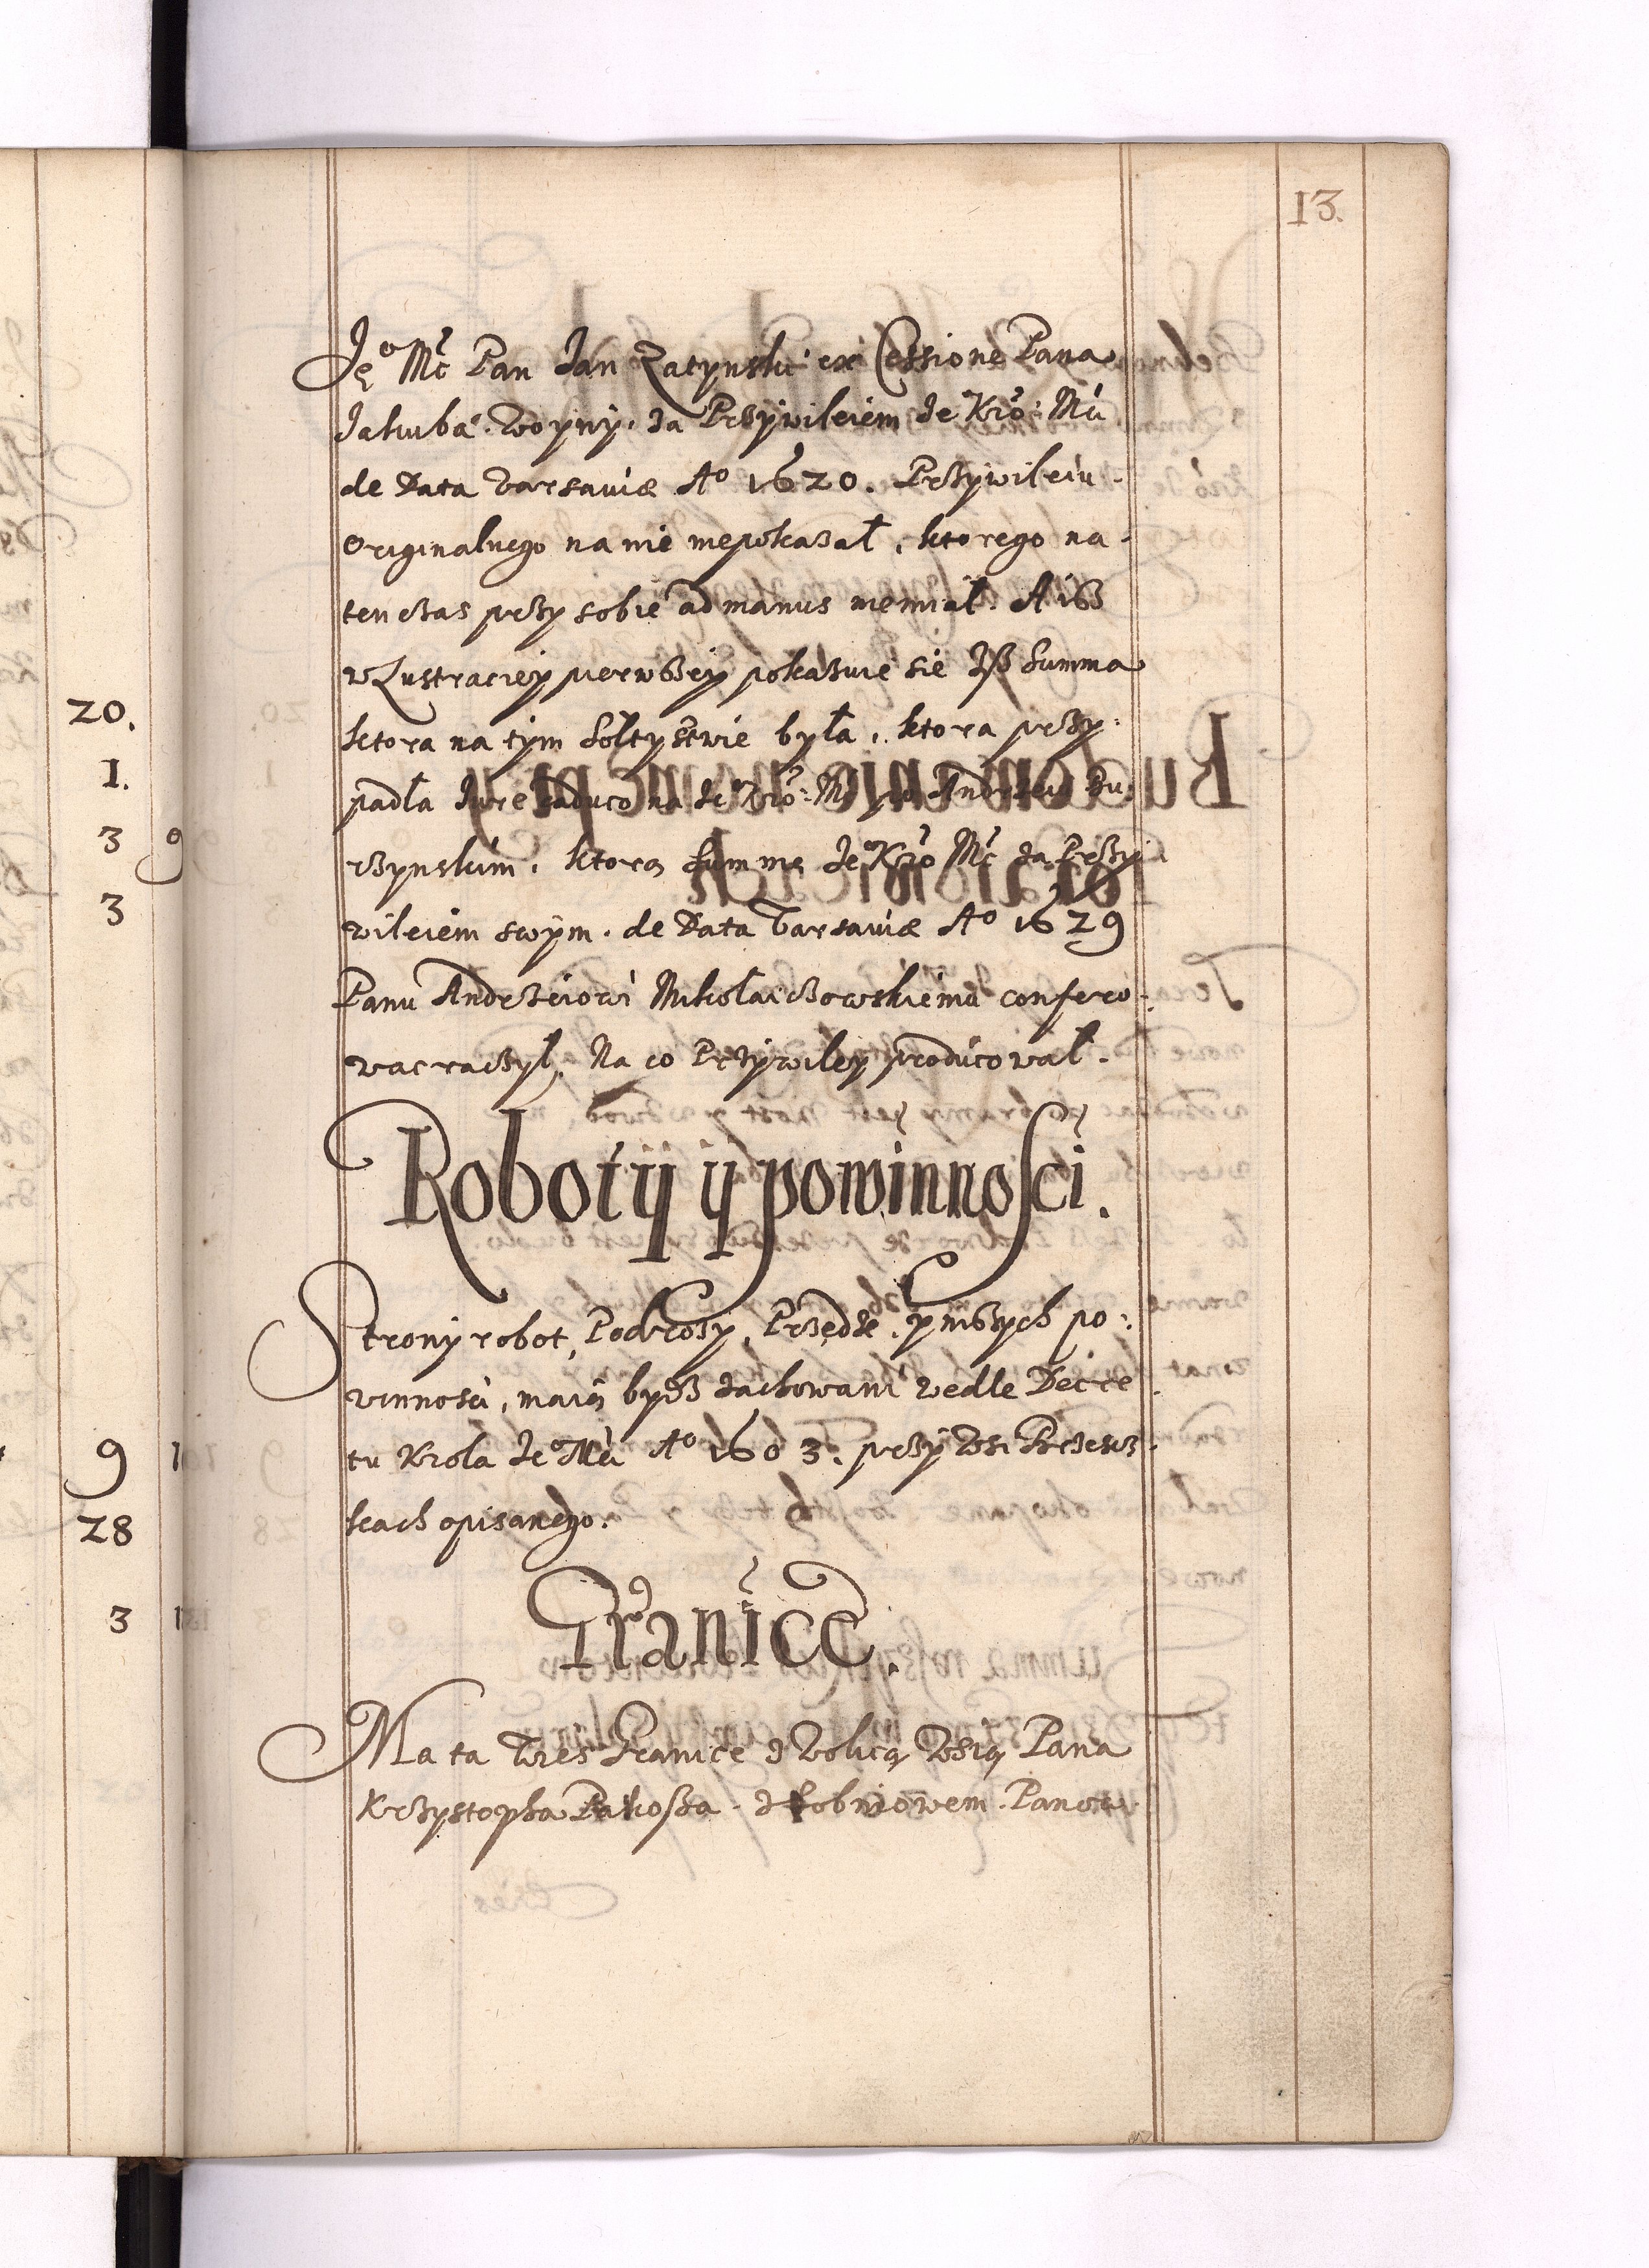 13.
Je° Mć Pan Jan Zatynski ex Cessione Pana
Jakuba Woyny, za Przywileiem Je° Kró: Mći
de Data Varsaviæ A° 1620. Przywileiu
Originalnego na nie niepokazał, ktorego na
ten czas przy sobie ad manus niemiał. A isz
w Lustraciey pierwszey pokazuie sie Isz Summa
ktora na tym Sołtystwie była, ktora przy:
padła Iure caduco na Je° Kró: M: po Andrzeiu Bu:
rzynskim, ktorą Summę Je° Kró Mć za Przy
wileiem swym de Data Varsaviæ A° 1629
Panu Andrzeiowi Mikołaiczowskiemu confero:
wac raczył, Na co Przywiley producował.
Roboty y powinnosci.
Strony robot, Podrozy, Przędze, y inszych po:
winnosci, maią bydz zachowani wedle Decre
tu Krola Je° Mći A° 1603. przy Wsi Przesz
kach opisanego.
Granice.
Ma ta Wies Granice z Wolicą Wsią Pana
Krzysztopha Pakosza z Łobniowem Panow
20.
1.
3 9
3
9
28
3